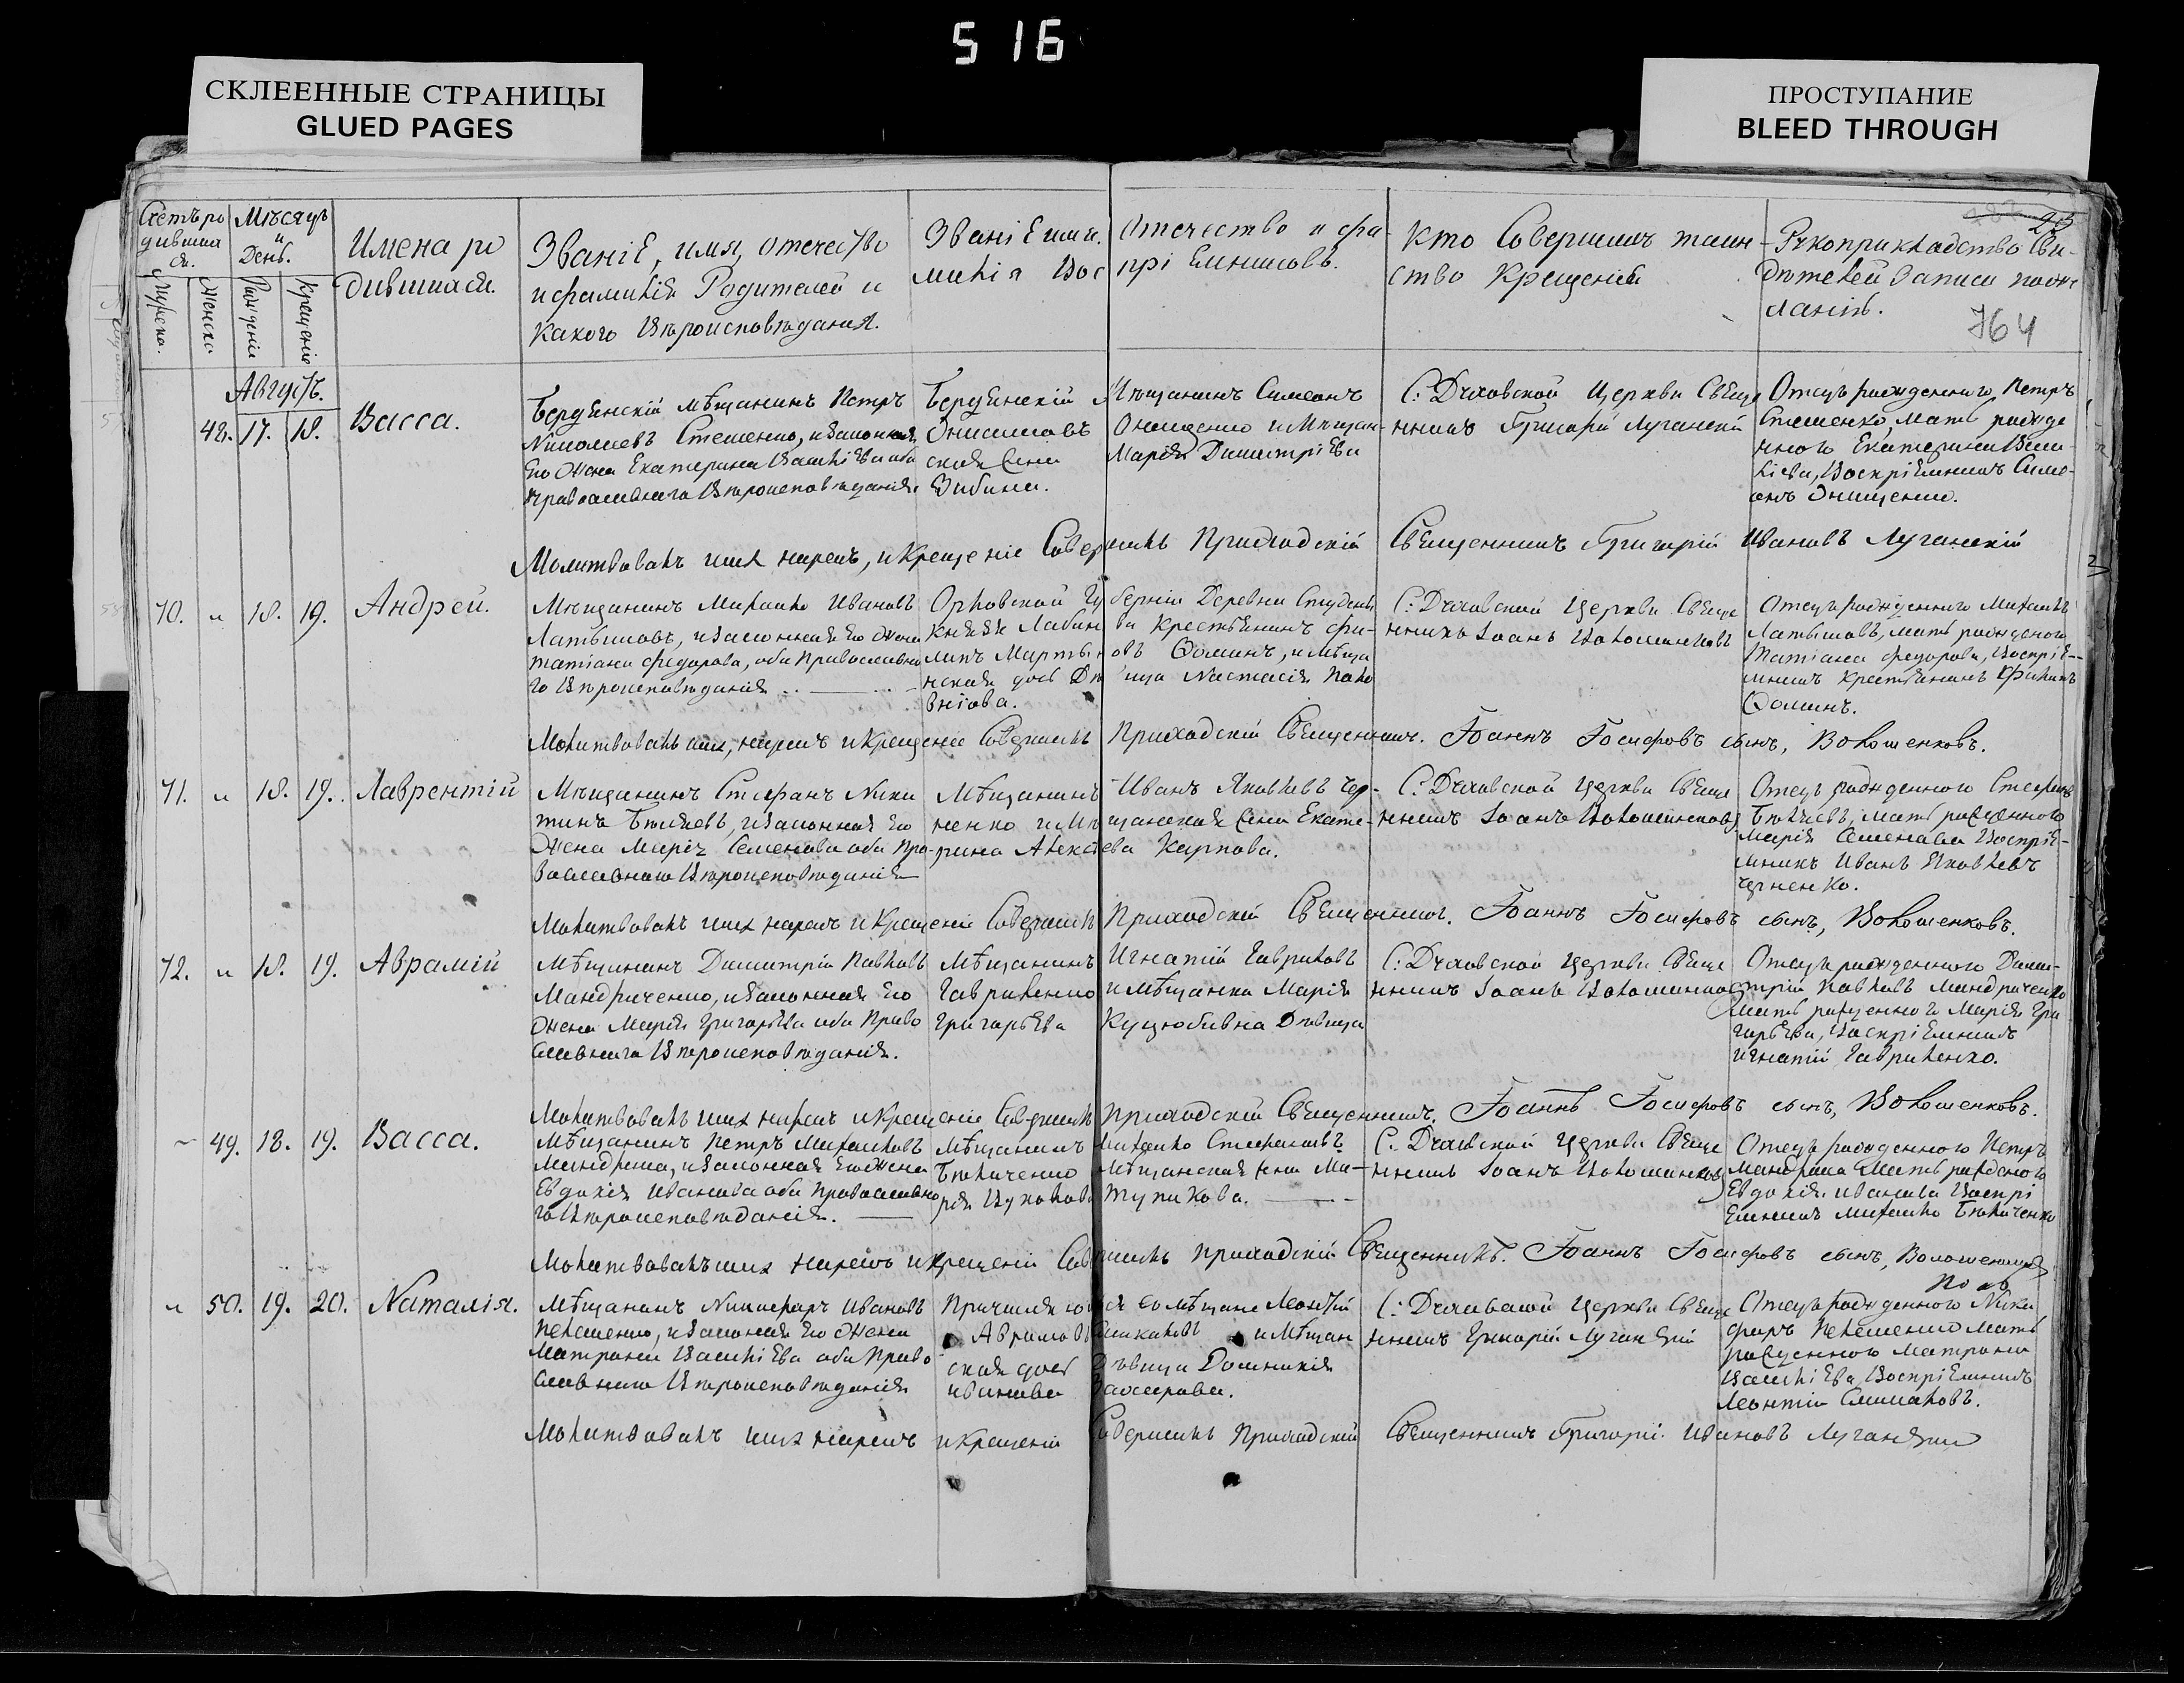 516
СКЛЕЕННЫЕ СТРАНИЦЫ
GLUED PAGES
ПРОСТУПАНИЕ
BLEED THROUGH
Счетъ ро
дивших
ся.
Мѣсяцъ
и
День.
Мужеска.
Женска.
Рожденія
Крещенія
Имена ро
дившихся.
Званіе, имя, отечество
и фамилія Родителей и
какого вѣроисповѣданія.
Званіе имя. Отечество и фа-
милія Вос прі емниковъ.
Кто Совершилъ таин-
ство Крещенія
Рукоприкладство Сви-
дѣтелей записи по же
ланію.
764
Августъ.
48. 17. 18. Васса.
Бердянскій мѣщанинъ Петръ
Николаевъ Стешенко, и законная
Его Жена Екатерина Василіева оба
Православнаго вѣроисповѣданія
Бердянскій Мѣщанинъ Симеонъ
Онисимовъ Онищенко и Мѣщан-
ская Марія Димитріева
Зибина.
С: Духовской Церкви Свяще
нникъ Григорій Луганскій
Отецъ рожденнаго, Петръ
Стешенко, Мать рожде
ннаго Екатерина Васи-
ліева, Воспріемникъ Симе-
онъ Онищенко.
Молитвовалъ имя нарекъ, и Крещеніе Совершилъ Приходскій Священникъ Григорій Ивановъ Луганскій
70. „ 18. 19. Андрей.
Мѣщанинъ Михайло Ивановъ
Латышовъ, и законная Его Жена
Татіана Федорова, оба Православна
го вѣроисповѣданія
Орловской Губерніи Деревни
Крестьянинъ Фи-
липъ Мартыновъ Фоминъ, и мѣща
нская дочь Дѣвица Настасія Пав
С: Духовской Церкви Свяще
нникъ Іоанъ Волошенковъ
Отецъ рожденнаго Михаилъ
Латышовъ, мать рожденаго
Татіана Федорова, Воспріе-
мникъ Крестьянинъ Филипъ
Фоминъ.
Молитвовалъ имя, нарекъ и Крещеніе Совершилъ Приходскій Священникъ. Іоаннъ Іосифовъ сынъ, Волошенковъ.
71. „ 18. 19. Лаврентій
Мѣщанинъ Стефанъ Ники
тинъ Бѣляевъ, и законная Его
Жена Марія Семенова оба Пра-
вославнаго вѣроисповѣданія
Мѣщанинъ Иванъ Яковлевъ Чер-
ненко и Мѣщанская Екате-
рина Алексѣева Карпова.
С: Духовской Церкви Свяще
нникъ Іоанъ Волошенковъ
Отецъ рожденнаго Стефанъ
Бѣляевъ, мать рожденного
Марія Семенова Воспріе-
мникъ Иванъ Яковлевъ
Черненко.
Молитвовалъ имя нарекъ и Крещеніе Совершилъ Приходскій Священникъ. Іоаннъ Іосифовъ сынъ, Волошенковъ.
72. „ 18. 19. Аврамій
Мѣщанинъ Димитрій Павловъ
Мандриченко, и законная Его
Жена Марія Григорьева оба Право
славнаго вѣроисповѣданія.
Мѣщанинъ Игнатій Гавриловъ
Гавриленко и мѣщанка Марія
Григорьева Куцюбивна Дѣвица
С: Духовской Церкви Свяще
нникъ Іоанъ Волошенко
Отецъ рожденного Дими-
трій Павловъ Мандриченко
Мать рожденного Марія Гри
горьева, Воспріемникъ
Игнатій Гавриленко.
Молитвовалъ имя нарекъ и Крещеніе Совершилъ Приходскій Священникъ. Іоаннъ Іосифовъ сынъ, Волошенковъ.
„ 49. 18. 19. Васса.
Мѣщанинъ Петръ Михайловъ
Мандрика, и законная Его Жена
Евдокія Иванова оба Православна
го вѣроисповѣданія.
Мѣщанинъ Михайло Стефановъ
Бѣличенко Мѣщанская Ма-
рія Тупикова.
С: Духовской Церкви Свяще
нникъ Іоанъ Волошенковъ
Отецъ рожденного Петръ
Мандрика Мать рожденого
Евдокія Иванова Воспрі
емникъ Михайло Бѣличенко
Молитвовалъ имя нарекъ и Крещеніе Совершилъ Приходскій Священникъ. Іоаннъ Іосифовъ сынъ, Волошенковъ
„ 50. 19. 20. Наталія.
Мѣщанинъ Никифоръ Ивановъ
Пелешенко, и законная Его Жена
Матрона Василіева оба Право
славнаго вѣроисповѣданія
Леонтій
Аврамовъ Симаковъ и Мѣщан
ская дочь Дѣвица Домникія
Иванова
С: Духовской Церкви Свяще
нникъ Григорій Луганскій
Отецъ рожденного Ники
форъ Пелешенко Мать
рожденного Матрона
Василіева, Воспріемникъ
Леонтій Симаковъ.
Молитвовалъ имя нарекъ и Крещеніе Совершилъ Приходскій Священникъ Григорій Ивановъ Луганскій